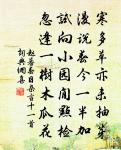 寒多草亦未抽芽
漫说春今一半加
试向小园闲点检
忽逢一树木瓜花
赵蕃春日杂言十一首
词典网喜